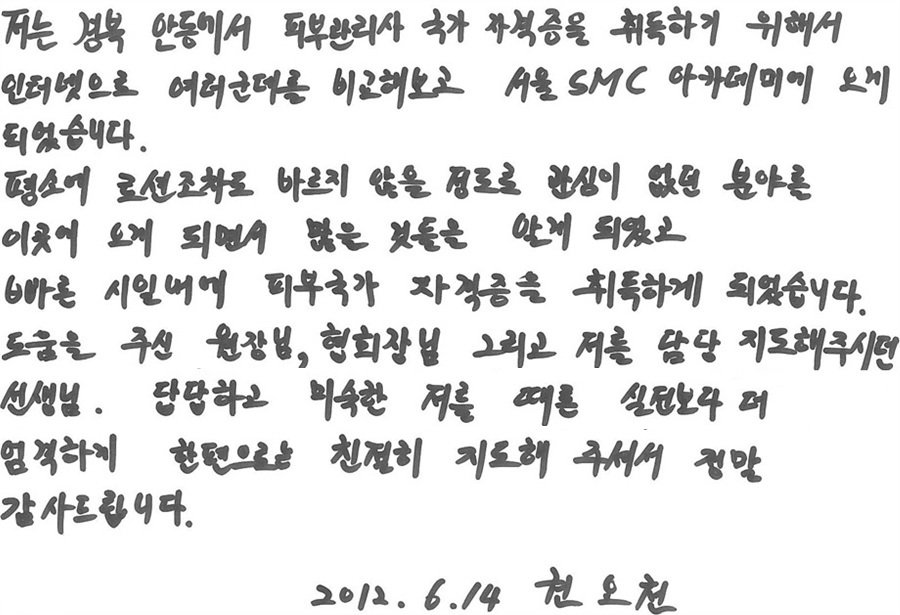 저는 경북 안동에서 피부관리사 국가 자격증을 취득하기 위해서
인터넷으로 여러군데를 비교해보고 서울 SMC 아카데미에 오게
되었습니다.
평소에 로션조차도 바르지 않을 정도로 관심이 없던 분야를
이곳에 오게 되면서 많은 것들을 알게 되었고
빠른 시일내에 피부국가 자격증을 취득하게 되었습니다.
도움을 주신 원장님, 현회장님 그리고 저를 담당 지도해주시던
선생님. 답답하고 미숙한 저를 때론 실전보다 더
엄격하게 한편으로는 친절히 지도해 주셔서 정말
감사드립니다.
2012. 6. 14 천오천